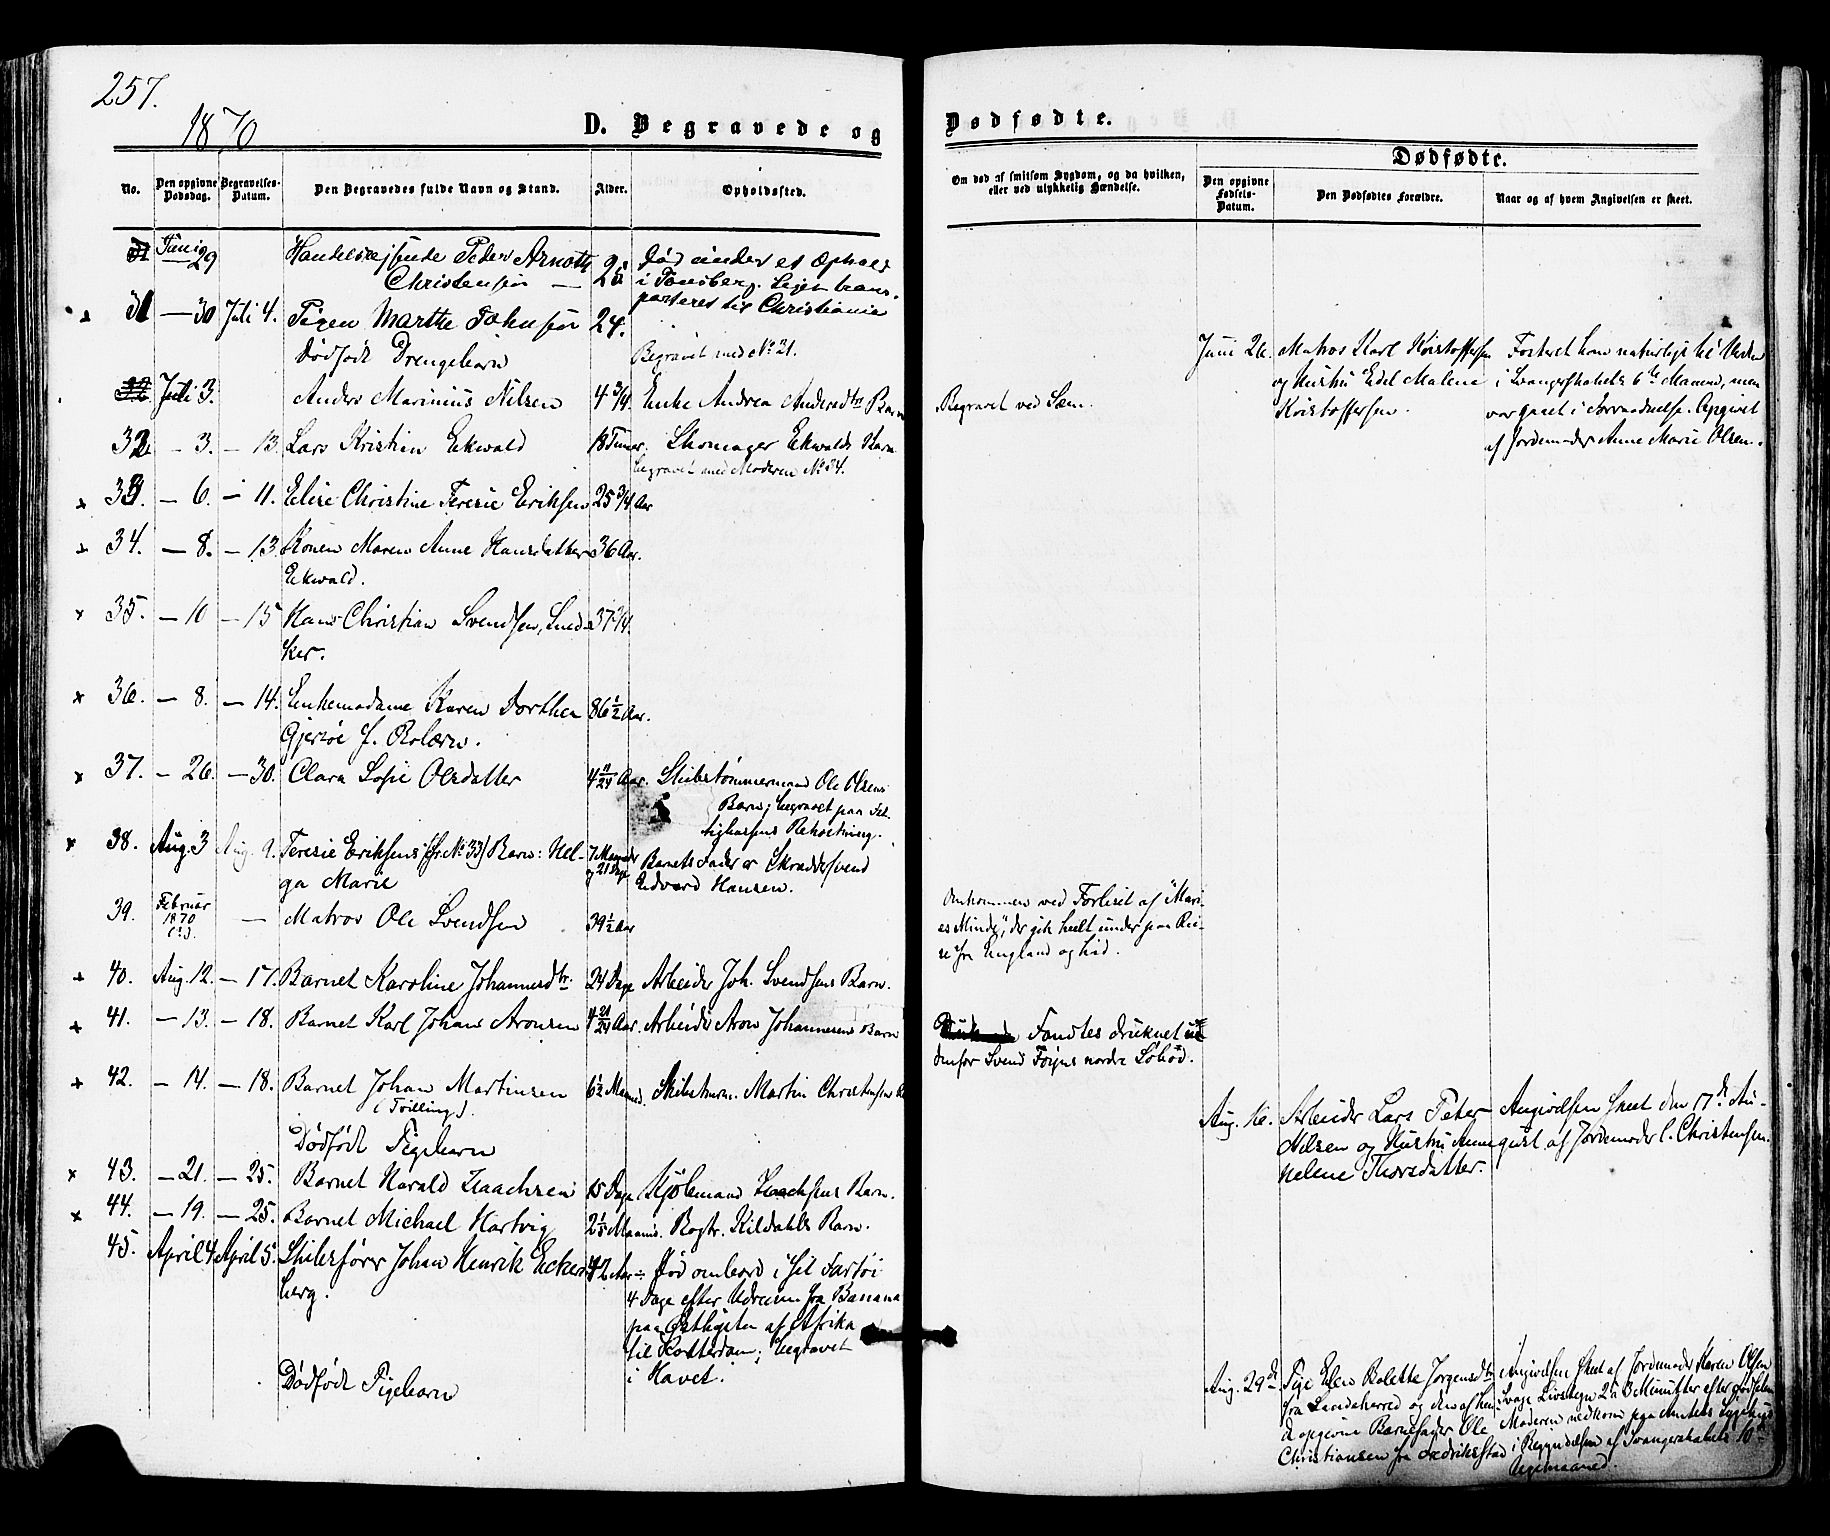 257.
1870
D. Begravede og
Dødfødte.
No.
Den opgivne Dødsdag.
Begravelses-Datum.
Den Begravedes fulde Navn og Stand.
Alder.
Opholdssted.
Om død af smitsom Sygdom, og da hvilken, eller ved ulykkelig Hændelse.
Dødfødte.
Den opgivne Fødsels-Datum.
Den Dødfødtes Forældre.
Naar og af hvem Angivelsen er skeet.
31 Juni 29 Handelsrejsende Peder Arnoth 25 Død under et Ophold
Christensen i Tønsberg. Liget trans-
porteret til Christiania
31 — 30 Juli 4. Pigen Marthe Johnsen 24.
Dødfødt Drengebarn Begravet med No 31.
Juni 26. Matros Karl Kristoffersen
og Hustru Edel Malene
Kristoffersen.
Fosteret kom naturligt til Verden
i Svangerskabets 6te Maaned, men
var gaaet i Forraadnelse. Opgivet
af Jordemoder Anne Marie Olsen.
32 Juli 3. Anders Marinius Nilsen 4 3/4 Enke Andrea Andersdtr Barn Begravet ved Sem.
32 — 3. — 13. Lars Kristian Eekwald 18 Timer. Skomager Eekwalds Barn
begravet med Moderen No 34.
33. — 6. — 11. Elise Christine Teresie Eriksen 25 3/4 Aar
34. — 8. — 13. Konen Maren Anne Hansdatter 36 Aar.
Eekwald.
35. — 10 — 15 Hans Christian Svendsen, Sned-
ker.
36. — 8. — 14. Enkemadame Karen Dorthea 86 1/2 Aar.
Gjersøe f. Bolærn.
37. — 26. — 30. Clara Sofie Olsdatter 4 11/24 Aar. Skibstømmermand Ole Olsens
Barn; begravet paa Fat-
tigkassens Bekostning.
38. Aug. 3 Aug. 9. Teresie Eriksens (fr. No 33) Barn: Hel- 7 Maaneder
ga Marie og 21 Dage
Barnets Fader er Skræddersvend
Edvard Hansen.
39. Februar 1870 — Matros Ole Svendsen 39 1/2 Aar
Omkommen ved Forliset af "Mari-
es Minde", der gik heelt under paa Rei-
se fra England og hid.
40. Aug. 12. — 17. Barnet Karoline Johannesdtr. 24 Dage Arbeider Joh. Svendsens Barn.
41. — 13. — 18. Barnet Karl Johan Aronsen 4 21/24 Aar. Arbeider Aron Johannesens Barn
Fandtes druknet u-
denfor Svend Foyns nordre Søbod.
42. — 14. — 18. Barnet Johan Martinsen 6 1/2 Maaned. Skibstmrm. Martin Christensen
(Tvilling).
Dødfødt Pigebarn
Aug. 16. Arbeider Lars Peter
Nilsen og Hustru Anne
Helene Thorsdatter.
Angivelsen skeet den 17de Au-
gust af Jordemoder C. Christensen.
43. — 21. — 25. Barnet Harald Isaachsen 15 Dage Sjømand Isaachsens Barn.
44. — 19. — 25. Barnet Michael Hartvig 2 1/3 Maaned. Bogtr. Kildahls Barn.
45. April 4. April 5. Skibsfører Johan Henrik Eckers- 42 Aar Død ombord i sit Fartøi
berg. 4 Dage efter Udreisen fra Banana
paa Østkysten af Afrika
til Rotterdam; begravet
i Havet.
Dødfødt Pigebarn
Aug. 29de Pige Elen Bolette Jørgensdtr
fra Sandeherred og den af hen-
de opgivne Barnefader Ole
Christiansen fra Fredriksstad
Angivelsen skeet af Jordemoder Karen Olsen
Svage Livstegn 2 a 3 Minutter efter Fødselen
Moderen nedkom paa Amtets Sygehus
i Begyndelsen af Svangerskabets 10de
Ugemaaned.